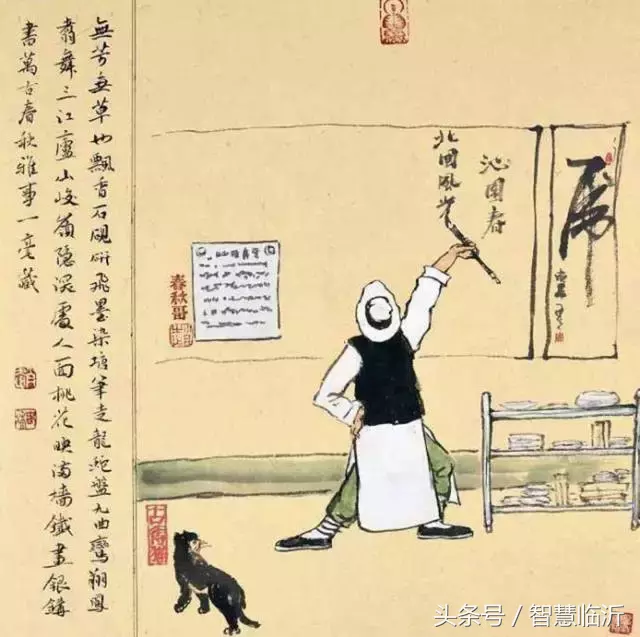 沁园春
北国风光
虎
春秋哥
無芳無草也飄香石硯研飛墨染塘筆走龍蛇盤九曲鸞翔鳳
翥舞三江廬山峻嶺隐深處人面桃花映滿墻鐵畫銀鈎
書萬古春秋雅事一毫藏
头条号 / 智慧临沂